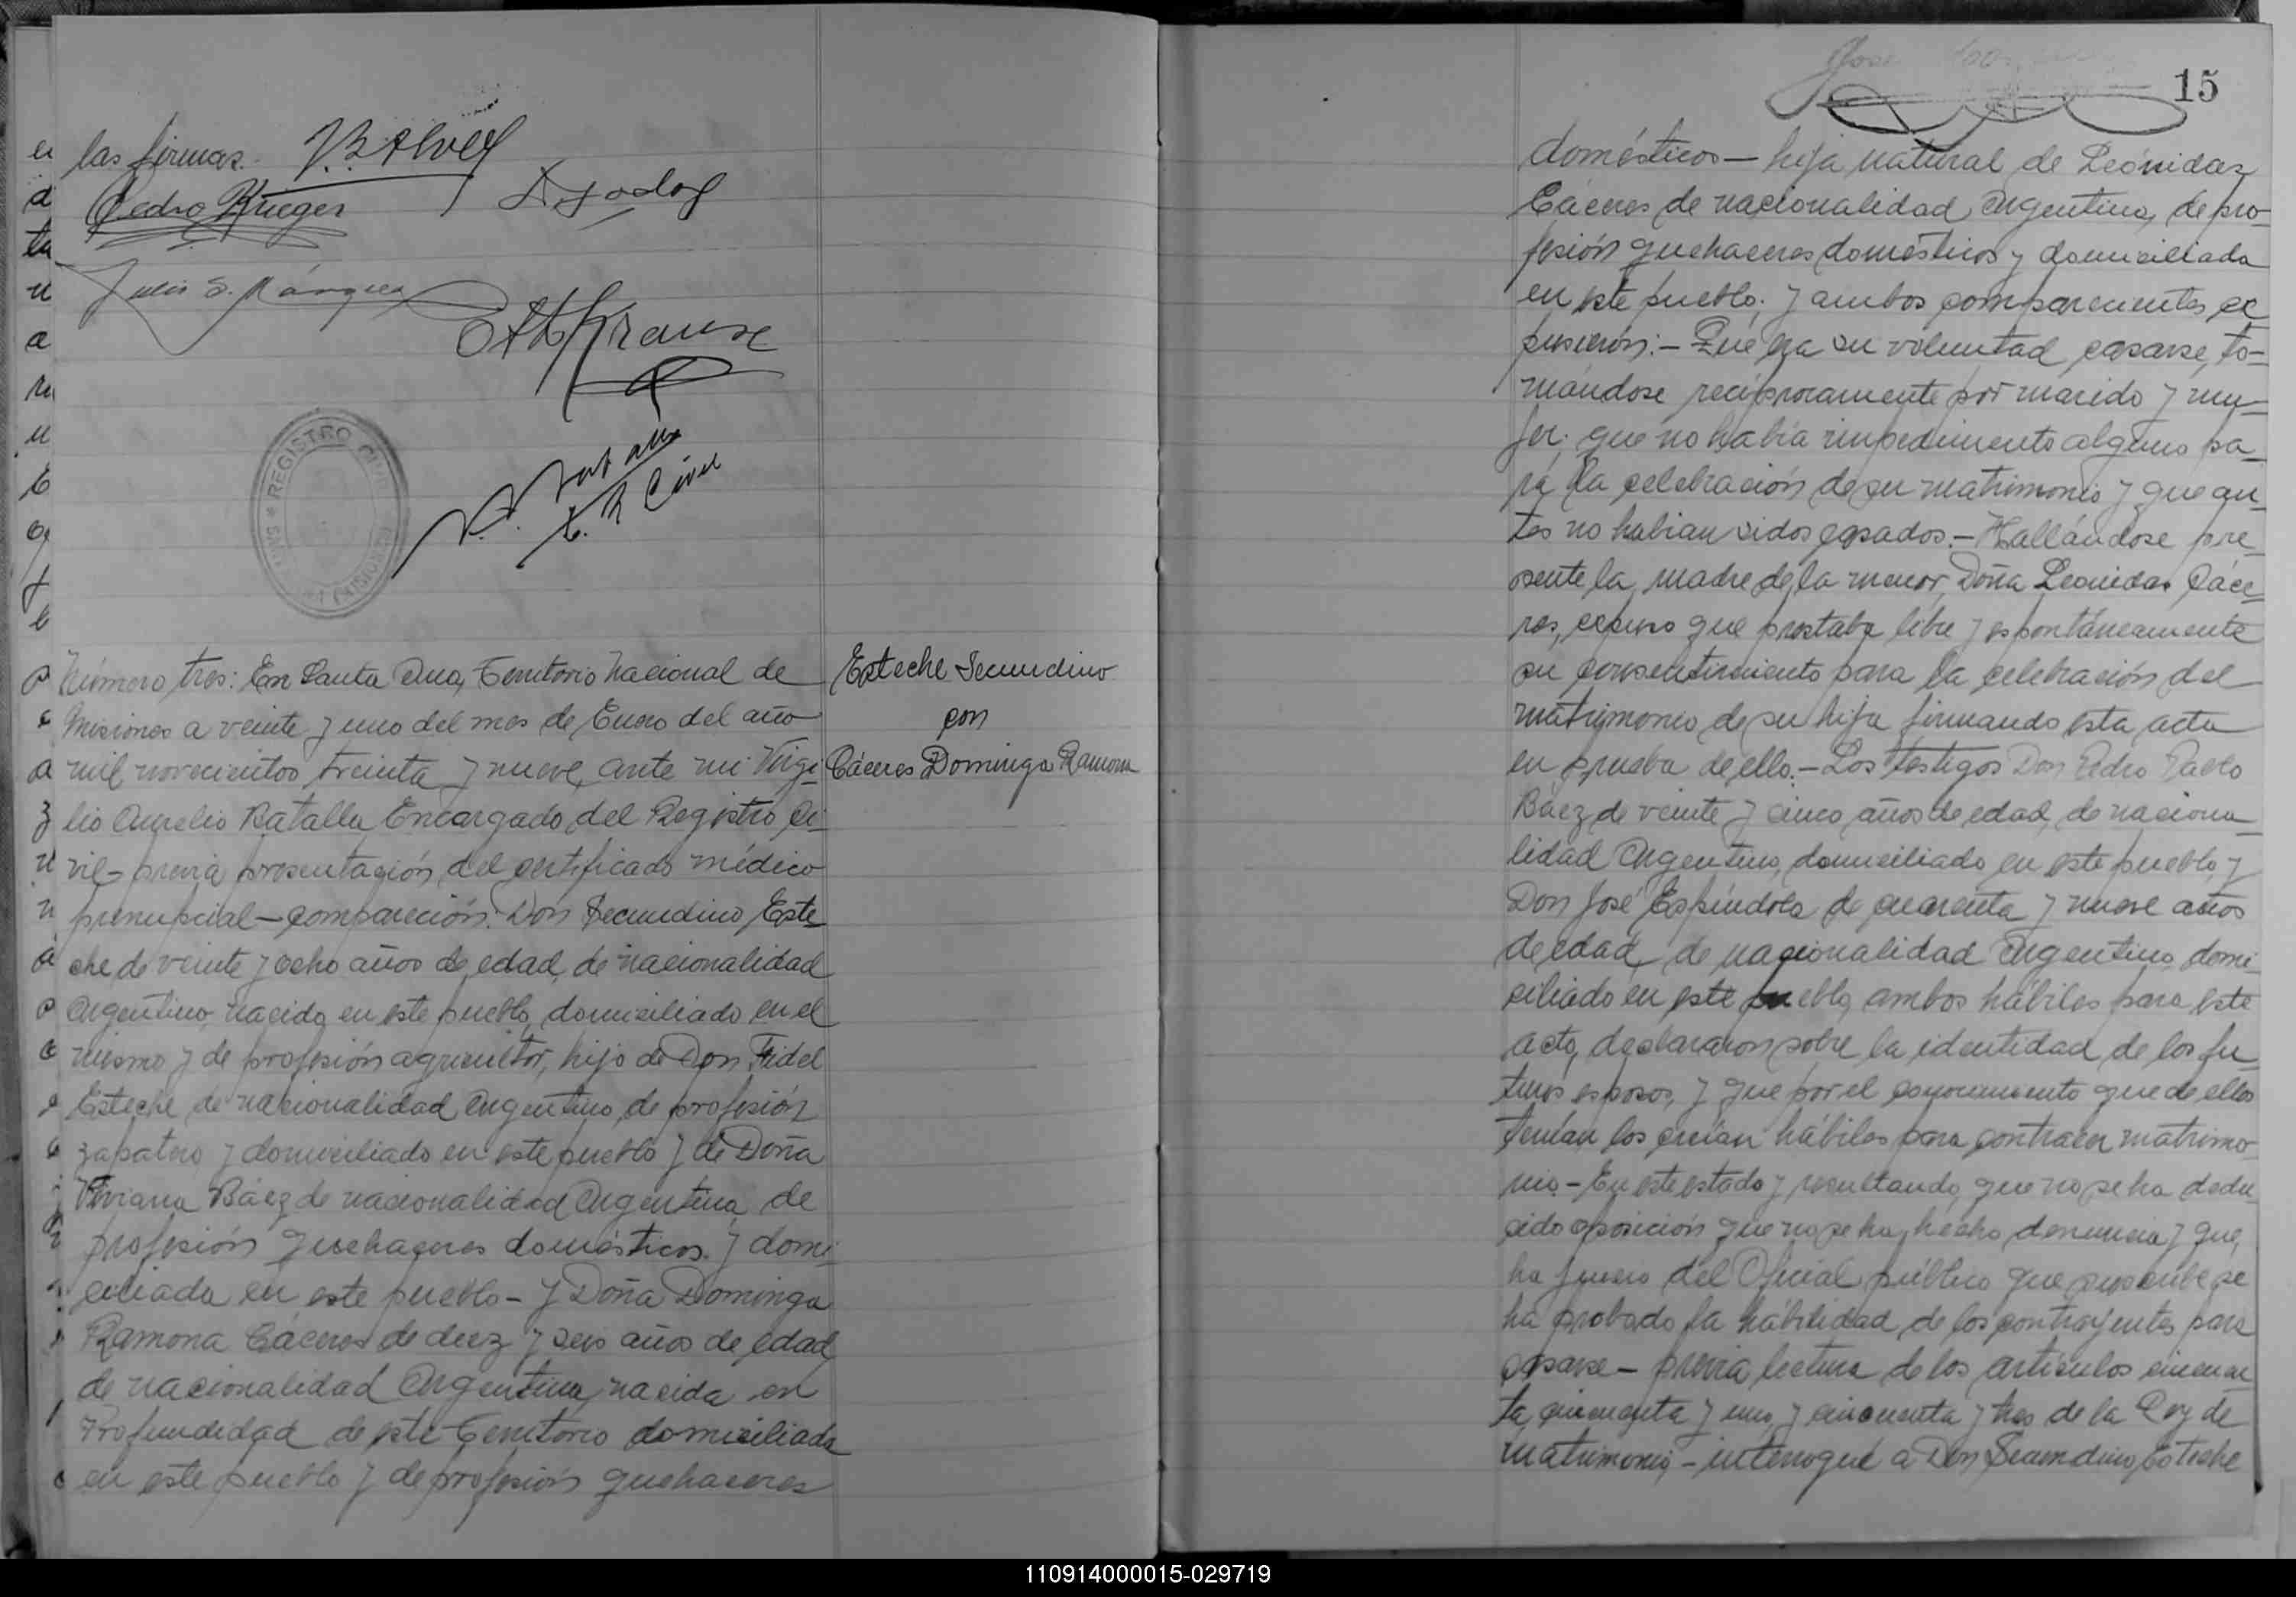 las firmas.
Pedro Krieger
Otto Krause
REGISTRO CIVIL
Número tres: En Santa Ana, Territorio Nacional de
Misiones a veinte y uno del mes de Enero del año
mil novecientos treinta y nueve, ante mi Virgi-
lio Aurelio Batalla Encargado del Registro Ci-
vil - previa presentación del certificado médico
prenupcial - comparecieron: Don Secundino Este-
che de veinte y ocho años de edad, de nacionalidad
Argentino, nacido en este pueblo, domiciliado en el
mismo y de profesión agricultor, hijo de Don Fidel
Esteche de nacionalidad Argentino, de profesión
zapatero y domiciliado en este pueblo y de Doña
Viviana Báez de nacionalidad Argentina, de
profesión quehaceres domésticos y domi-
ciliada en este pueblo - y Doña Dominga
Ramona Cáceres de diez y seis años de edad,
de nacionalidad Argentina, nacida en
Profundidad de este Territorio domiciliada
en este pueblo y de profesión quehaceres
Esteche Secundino
con
Cáceres Dominga Ramona
15
domésticos - hija natural de Leónidas
Cáceres de nacionalidad Argentina, de pro-
fesión quehaceres domésticos y domiciliada
en este pueblo; y ambos comparecientes ex
pusieron: - Que era su voluntad casarse, to-
mándose recíprocamente por marido y mu-
jer; que no había impedimento alguno pa-
ra la celebración de su matrimonio y que an-
tes no habian sidos casados. - Hallándose pre-
sente la madre de la menor, Doña Leonidas Cáce-
res, expuso que prestaba libre y espontáneamente
su consentimiento para la celebración del
matrimonio de su hija firmando esta acta
en prueba de ello. - Los testigos Don Pedro Pablo
Báez de veinte y cinco años de edad, de naciona-
lidad Argentino, domiciliado en este pueblo, y
Don José Espíndola de cuarenta y nueve años
de edad, de nacionalidad Argentino, domi-
ciliado en este pueblo, ambos hábiles para este
acto, declararon sobre la identidad de los fu-
turos esposos, y que por el conocimiento que de ellos
tenían los creían hábiles para contraer matrimo-
nio. - En este estado y resultando, que no se ha dedu-
cido oposición que no se ha hecho denuncia y que,
ha juicio del Oficial público que suscribe se
ha probado la habilidad de los contrayentes para
casarse - previa lectura de los artículos cincuen
ta, cincuenta y uno, y cincuenta y tres de la Ley de
matrimonio, - interrogué a Don Secundino Esteche
110914000015-029719